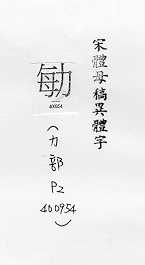 宋體母稿異體字
勄
400954
(力部
P2
400954)